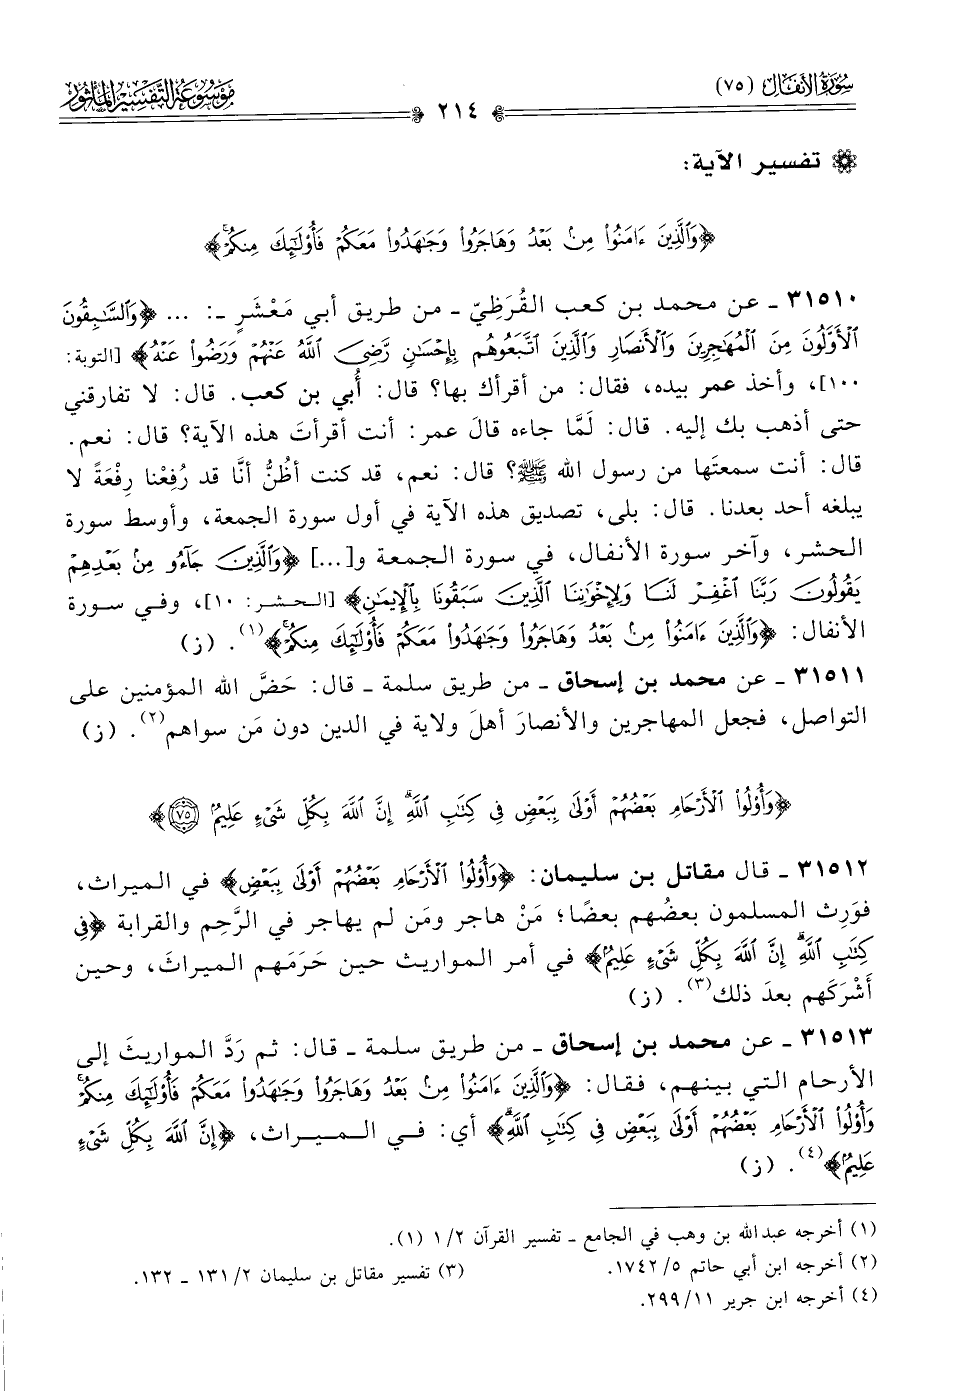 سُورَةُ الأَنفَالِ (٧٥)
٢١٤
مَوْسُوعَة التَّفْسِير المَأْثُور
تفسير الآية:
﴿وَٱلَّذِينَ ءَامَنُوا۟ مِنۢ بَعْدُ وَهَاجَرُوا۟ وَجَٰهَدُوا۟ مَعَكُمْ فَأُو۟لَٰٓئِكَ مِنكُمْ ۚ﴾
٣١٥١٠ ـ عن محمد بن كعب القُرَظِيّ ـ من طريق أبي مَعْشَرٍ ـ: ... ﴿وَٱلسَّٰبِقُونَ
ٱلْأَوَّلُونَ مِنَ ٱلْمُهَٰجِرِينَ وَٱلْأَنصَارِ وَٱلَّذِينَ ٱتَّبَعُوهُم بِإِحْسَٰنٍ رَّضِىَ ٱللَّهُ عَنْهُمْ وَرَضُوا۟ عَنْهُ﴾ [التوبة:
١٠٠]، وأخذ عمر بيده، فقال: من أقرأك بها؟ قال: أُبي بن كعب. قال: لا تفارقني
حتى أذهب بك إليه. قال: لَمَّا جاءه قالَ عمر: أنت أقرأتَ هذه الآية؟ قال: نعم.
قال: أنت سمعتَها من رسول الله ﷺ؟ قال: نعم، قد كنت أظُنُّ أنَّا قد رُفِعْنا رِفْعَةً لا
يبلغه أحد بعدنا. قال: بلى، تصديق هذه الآية في أول سورة الجمعة، وأوسط سورة
الحشر، وآخر سورة الأنفال، في سورة الجمعة و[...] ﴿وَٱلَّذِينَ جَآءُو مِنۢ بَعْدِهِمْ
يَقُولُونَ رَبَّنَا ٱغْفِرْ لَنَا وَلِإِخْوَٰنِنَا ٱلَّذِينَ سَبَقُونَا بِٱلْإِيمَٰنِ﴾ [الحشر: ١٠]، وفي سورة
الأنفال: ﴿وَٱلَّذِينَ ءَامَنُوا۟ مِنۢ بَعْدُ وَهَاجَرُوا۟ وَجَٰهَدُوا۟ مَعَكُمْ فَأُو۟لَٰٓئِكَ مِنكُمْ ۚ﴾(١). (ز)
٣١٥١١ ـ عن محمد بن إسحاق ـ من طريق سلمة ـ قال: حَضَّ الله المؤمنين على
التواصل، فجعل المهاجرين والأنصارَ أهلَ ولاية في الدين دون مَن سواهم(٢). (ز)
﴿وَأُو۟لُوا۟ ٱلْأَرْحَامِ بَعْضُهُمْ أَوْلَىٰ بِبَعْضٍ فِى كِتَٰبِ ٱللَّهِ ۗ إِنَّ ٱللَّهَ بِكُلِّ شَىْءٍ عَلِيمٌۢ ٧٥﴾
٣١٥١٢ ـ قال مقاتل بن سليمان: ﴿وَأُو۟لُوا۟ ٱلْأَرْحَامِ بَعْضُهُمْ أَوْلَىٰ بِبَعْضٍ﴾ في الميراث،
فوَرِث المسلمون بعضُهم بعضًا؛ مَنْ هاجر ومَن لم يهاجر في الرَّحِم والقرابة ﴿فِى
كِتَٰبِ ٱللَّهِ ۗ إِنَّ ٱللَّهَ بِكُلِّ شَىْءٍ عَلِيمٌۢ﴾ في أمر المواريث حين حَرَمَهم الميراثَ، وحين
أَشْرَكَهم بعدَ ذلك(٣). (ز)
٣١٥١٣ ـ عن محمد بن إسحاق ـ من طريق سلمة ـ قال: ثم رَدَّ المواريثَ إلى
الأرحام التي بينهم، فقال: ﴿وَٱلَّذِينَ ءَامَنُوا۟ مِنۢ بَعْدُ وَهَاجَرُوا۟ وَجَٰهَدُوا۟ مَعَكُمْ فَأُو۟لَٰٓئِكَ مِنكُمْ ۚ
وَأُو۟لُوا۟ ٱلْأَرْحَامِ بَعْضُهُمْ أَوْلَىٰ بِبَعْضٍ فِى كِتَٰبِ ٱللَّهِ ۗ﴾ أي: في الميراث، ﴿إِنَّ ٱللَّهَ بِكُلِّ شَىْءٍ
عَلِيمٌۢ﴾(٤). (ز)
(١) أخرجه عبدالله بن وهب في الجامع ـ تفسير القرآن ٢/ ١ (١).
(٢) أخرجه ابن أبي حاتم ٥/ ١٧٤٢. (٣) تفسير مقاتل بن سليمان ٢/ ١٣١ ـ ١٣٢.
(٤) أخرجه ابن جرير ١١/ ٢٩٩.